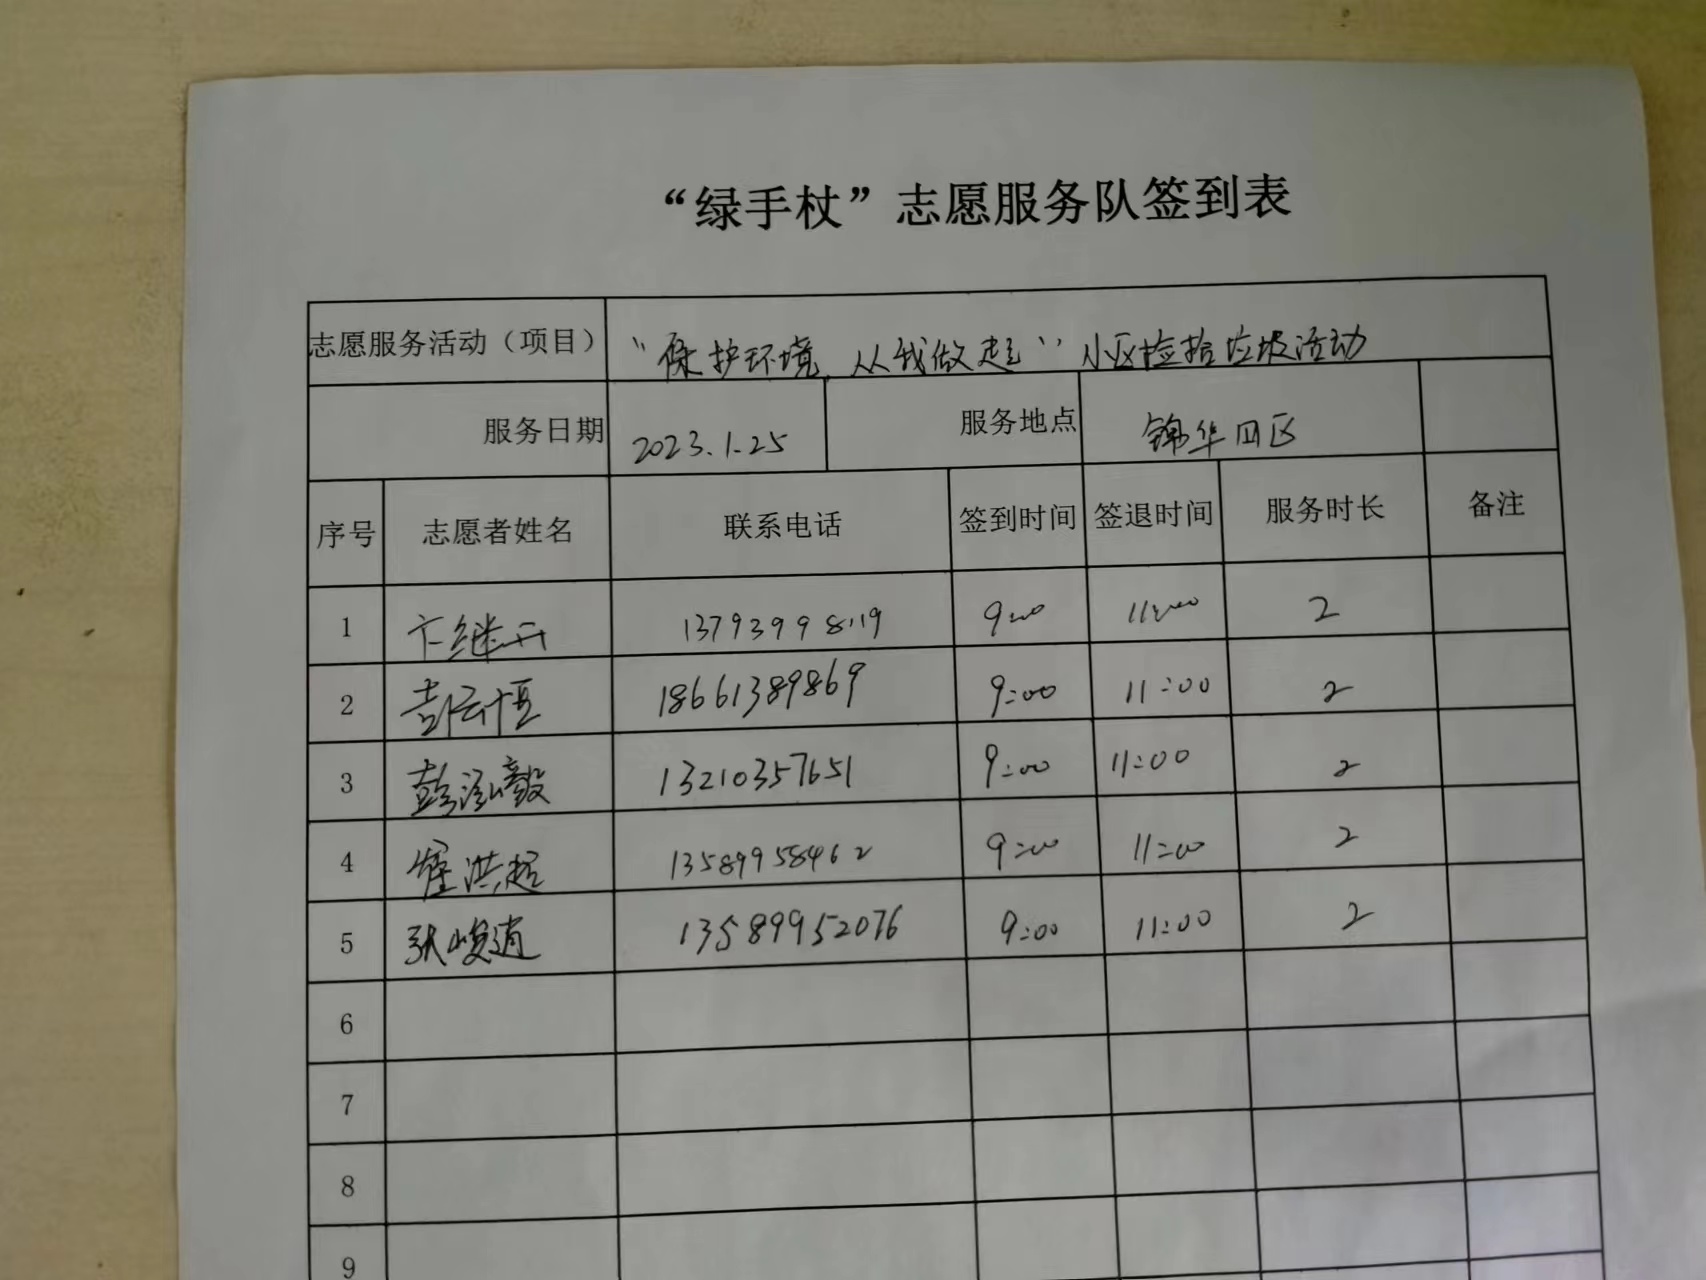 “绿手杖”志愿服务队签到表
志愿服务活动（项目） “保护环境,从我做起”小区捡拾垃圾活动
服务日期 2023.1.25 服务地点 锦华四区
序号 志愿者姓名 联系电话 签到时间 签退时间 服务时长 备注
1 卞继开 13793998119 9:00 11:00 2
2 彭云恒 18661389869 9:00 11:00 2
3 彭泓毅 13210357651 9:00 11:00 2
4 崔洪超 13589958462 9:00 11:00 2
5 张峻逍 13589952076 9:00 11:00 2
6
7
8
9